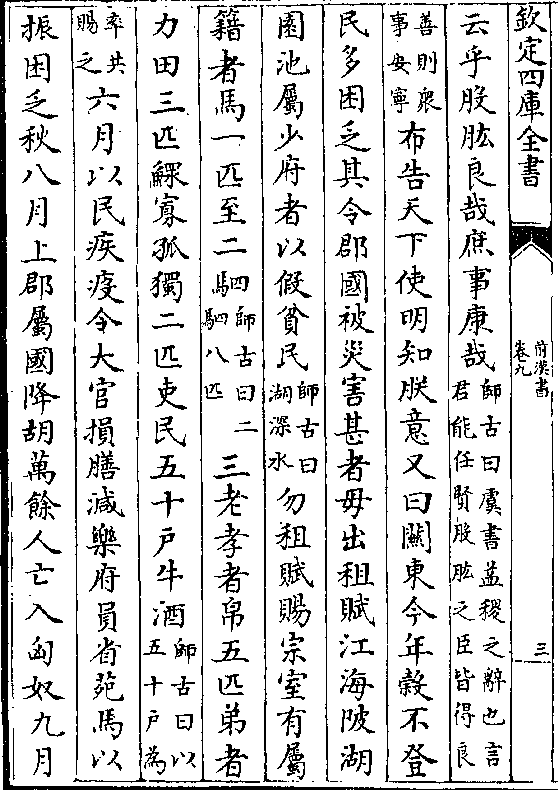 欽定四庫全書
前漢書
卷九
三
云乎股肱良哉庶事康哉師古曰虞書益稷之辭也言
君能任賢股肱之臣皆得良
善則衆
事安寧布告天下使明知朕意又曰關東今年穀不登
民多困乏其令郡國被災害甚者毋出租賦江海陂湖
園池屬少府者以假貧民師古曰
湖深水勿租賦賜宗室有屬
籍者馬一匹至二駟師古曰二
駟八匹三老孝者帛五匹弟者
力田三匹鰥寡孤獨二匹吏民五十戸牛酒師古曰以
五十戸為
率共
賜之六月以民疾疫令大官損膳減樂府員省苑馬以
振困乏秋八月上郡屬國降胡萬餘人亡入匈奴九月